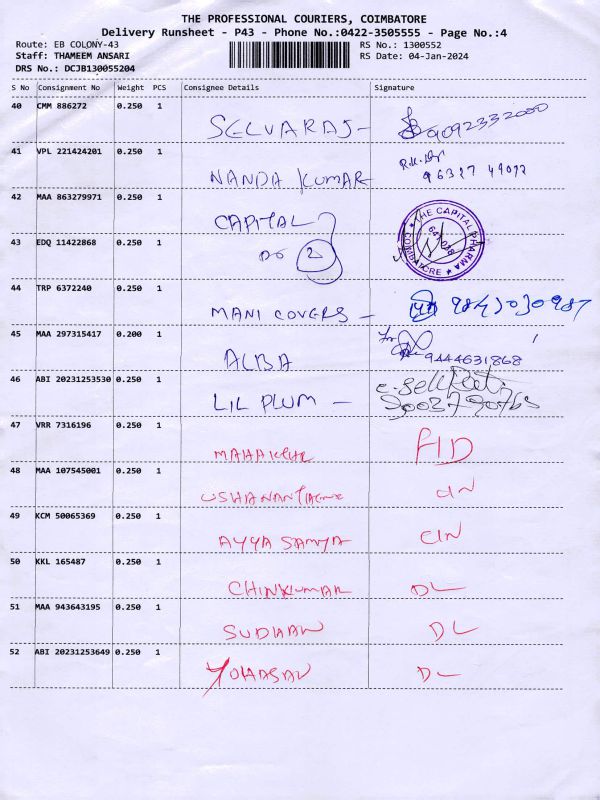 THE PROFESSIONAL COURIERS, COIMBATORE
Delivery Runsheet - P43 - Phone No.:0422-3505555 - Page No.:4
Route: EB COLONY-43
RS No.: 1300552
Staff: THAMEEM ANSARI
RS Date: 04-Jan-2024
DRS No.: DCJB130055204
S No Consignment No Weight PCS Consignee Details Signature
40 CMM 886272 0.250 1
SELVARAJ - 9092332000
41 VPL 221424201 0.250 1
NANDA KUMAR 96327 49072
42 MAA 863279971 0.250 1
CAPITAL
THE CAPITAL PHARMA
COIMBATORE
43 EDQ 11422868 0.250 1
DO 2
44 TRP 6372240 0.250 1
MANI COVERS -
45 MAA 297315417 0.200 1
ALBA 9444631868
46 ABI 20231253530 0.250 1
LIL PLUM -
47 VRR 7316196 1
HD
48 MAA 107545001 0.250 1
49 KCM 50065369 0.250 1
AYYA SAMYA
50 KKL 165487 0.250 1
CHINKUMAR DL
51 MAA 943643195 0.250 1
SUDHAN DL
52 ABI 20231253649 0.250 1
DL